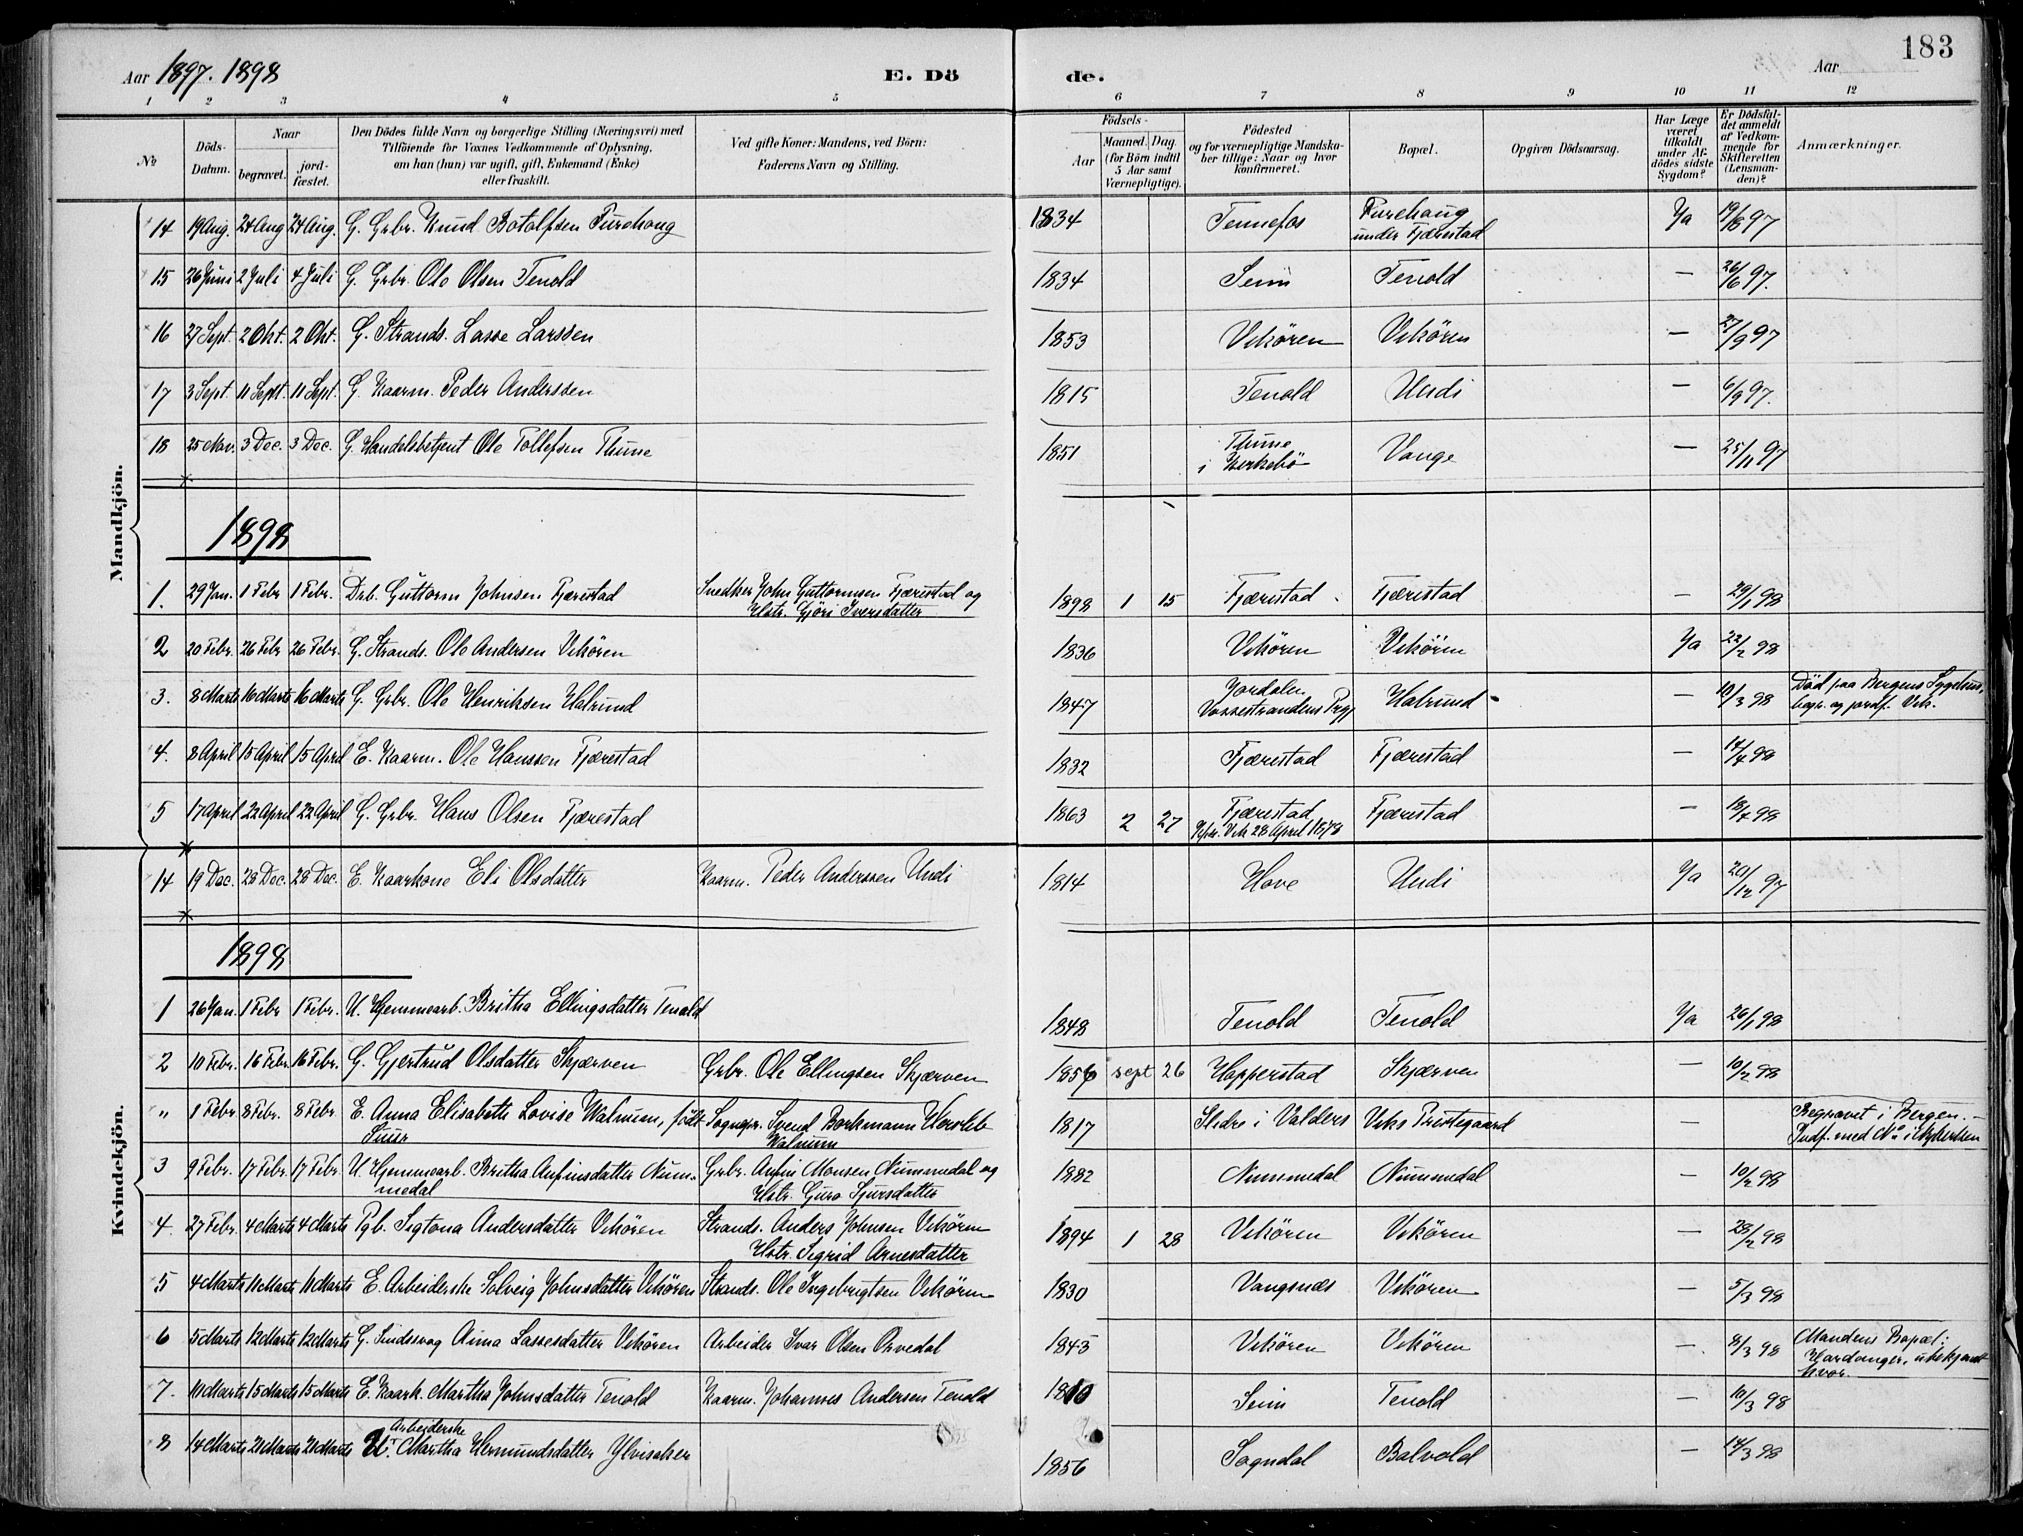 183
Aar 1897. 1898 E. Dö de. Aar
1 2 3 4 5 6 7 8 9 10 11 12
No
Döds-Datum.
Naar
begravet.
jord-fæstet.
Den Dödes fulde Navn og borgerlige Stilling (Næringsvei) med
Tilföiende for Voxnes Vedkommende af Oplysning,
om han (hun) var ugift, gift, Enkemand (Enke)
eller fraskilt.
Ved gifte Koner: Mandens, ved Börn:
Faderens Navn og Stilling.
Födsels-
Aar
Maaned. Dag.
(for Börn indtil
5 Aar samt
Værnepligtige).
Födested
og for værnepligtige Mandska-
ber tillige: Naar og hvor
konfirmeret.
Bopæl.
Opgiven Dödsaarsag.
Har Læge
været
tilkaldt
under Af-
dödes sidste
Sygdom?
Er Dödsfal-
det anmeldt
af Vedkom-
mende for
Skifteretten
(Lensman-
den)?
Anmærkninger.
Mandkjön.
14 19 Aug. 24 Aug 24 Aug. G. Grbr. Knud Botolfsen Furehoug 1834 Tennefos Furehoug under Fjærestad Ja 19/8 97
15 26 Juni 2 Juli 4 Juli G. Grbr. Ole Olsen Tenold 1834 Seim Tenold — 26/6 97.
16 27 Sept. 2 Okt. 2 Okt. G. Strands. Lasse Larssen 1853 Vikören Vikören — 27/9 97
17 3 Sept. 11 Sept. 11 Sept. G. Kaarm. Peder Anderssen 1815 Tenold Undi — 6/9 97.
18 25 Nov. 3 Dec. 3 Dec. G. Handelsbetjent Ole Tollefsen Thune 1851 Thune i Kirkebö Vange — 25/11 97
1898
1. 29 Jan. 1 Febr 1 Febr. Drb. Guttorm Johnsen Fjærestad Snedker John Guttormsen Fjærestad og Hstr. Gjöri Iversdatter 1898 1 15 Fjærestad Fjærestad — 29/1 98
2 20 Febr. 26 Febr 26 Febr. G. Strands. Ole Andersen Vikören 1836 Vikören Vikören Ja 22/2 98
3. 8 Marts 16 Marts 16 Marts G. Grbr. Ole Henriksen Halrund 1847 Jordalen Vossestrandens Prgj Halrund — 10/3 98 Död paa Bergens Sygehus, begr. og jordf. Vik.
4. 8 April 15 April 15 April E. Kaarm. Ole Hanssen Fjærestad 1832 Fjærestad Fjærestad — 14/4 98
5 17 April 22 April 22 April G. Grbr. Hans Olsen Fjærestad 1863 2 27 Fjærestad Kfr. Vik 28 April 1878 Fjærestad — 18/4 98
Kvindekjön.
14 19 Dec. 28 Dec. 28 Dec. E. Kaarkone Eli Olsdatter Kaarm. Peder Anderssen Undi 1814 Hove Undi Ja 20/12 97
1898
1 26 Jan. 1 Febr 1 Febr. U. Hjemmearb. Britha Ellingsdatter Tenold 1848 Tenold Tenold Ja 26/1 98
2 10 Febr. 16 Febr 16 Febr. G. Gjertrud Olsdatter Skjærven Grbr. Ole Ellingsen Skjærven 1856 sept 26 Hopperstad Skjærven — 10/2 98
" 1 Febr 8 Febr. 8 Febr E. Anna Elisabeth Lovise Walnum, født Sogupr. Svend Borkmann Hersleb Walnum 1817 Slidre i Valders Viks Prestegaard — Begravet i Bergen. — Indf. med No i
3 9 Febr. 17 Febr. 17 Febr. U. Hjemmearb. Britha Anfinsdatter Nummedal Grbr. Anfin Monsen Nummedal og Hstr. Guro Sjursdatter 1882 Nummedal Nummedal — 10/2 98
4. 27 Febr. 4 Marts 4 Marts Pgb. Sigtona Andersdatter Vikören Strands. Anders Johnsen Vikören Hstr. Sigrid Arnesdatter 1894 1 28 Vikören Vikören — 28/2 98
5 4 Marts 11 Marts 11 Marts E. Arbeiderske Solveig Johnsdatter Vikören Strands. Ole Ingebrigtsen Vikören 1830 Vangsnæs Vikören — 5/3 98
6 5 Marts 12 Marts 12 Marts G. Sindssvag Anna Lassesdatter Vikören Arbeider Ivar Olsen Orvedal 1845 Vikören Vikören — 8/3 98 Mandens Bopæl: Hardanger, ubekjendt hvor.
7. 10 Marts 15 Marts 15 Marts E. Kaark. Martha Johnsdatter Tenold Kaarm. Johannes Andersen Tenold 1810 Seim Tenold — 10/3 98
8 14 Marts 21 Marts 21 Marts U. Arbeiderske Martha Hermundsdatter Ylvisaker 1856 Sogndal Balvold — 14/3 98